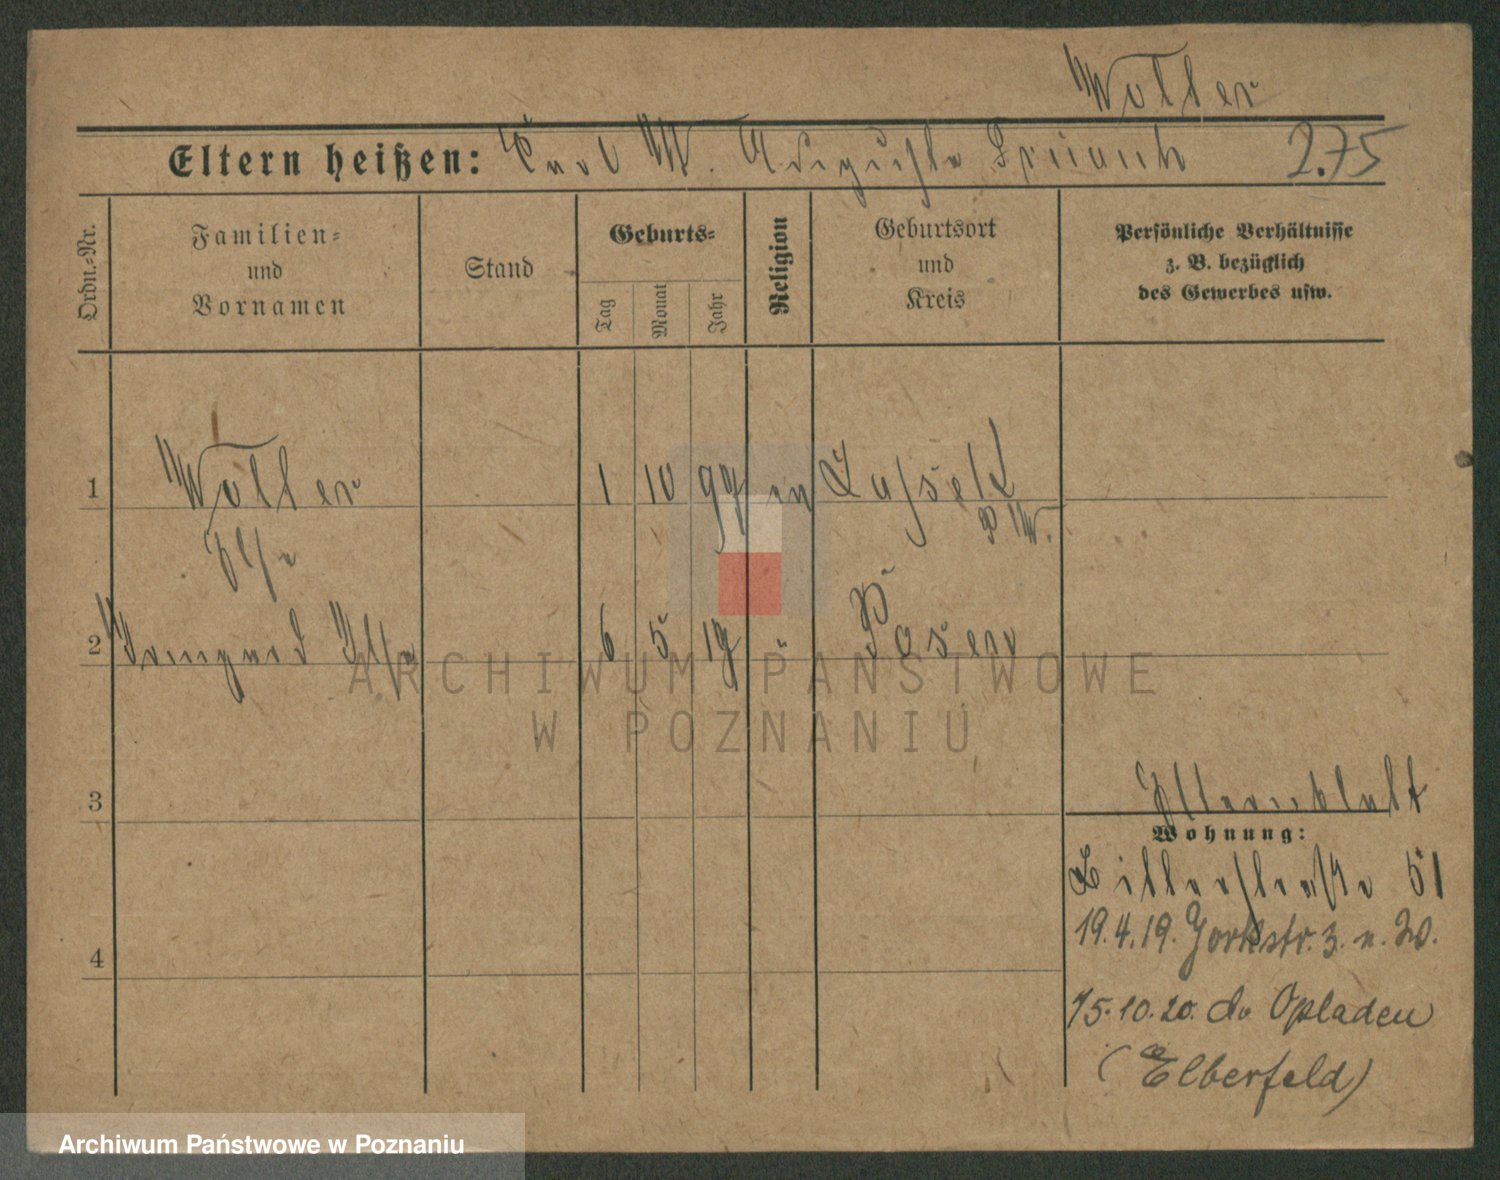 Wolter
Eltern heißen: Carl W. Auguste 2.75
Ordn.-Nr.
Familien-
und
Vornamen
Stand
Geburts-
Tag
Monat
Jahr
Religion
Geburtsort
und
Kreis
Persönliche Verhältnisse
z. B. bezüglich
des Gewerbes usw.
1 Wolter 1 10 97
P W.
Else
2 Irmgard Ilse 6 5 19 " Posen
ARCHIWUM PAŃSTWOWE
W POZNANIU
3
Elternblatt
Wohnung:
51
19.4.19. Yorkstr. 3. n. W.
4
15.10.20. Opladen
(Elberfeld)
Archiwum Państwowe w Poznaniu